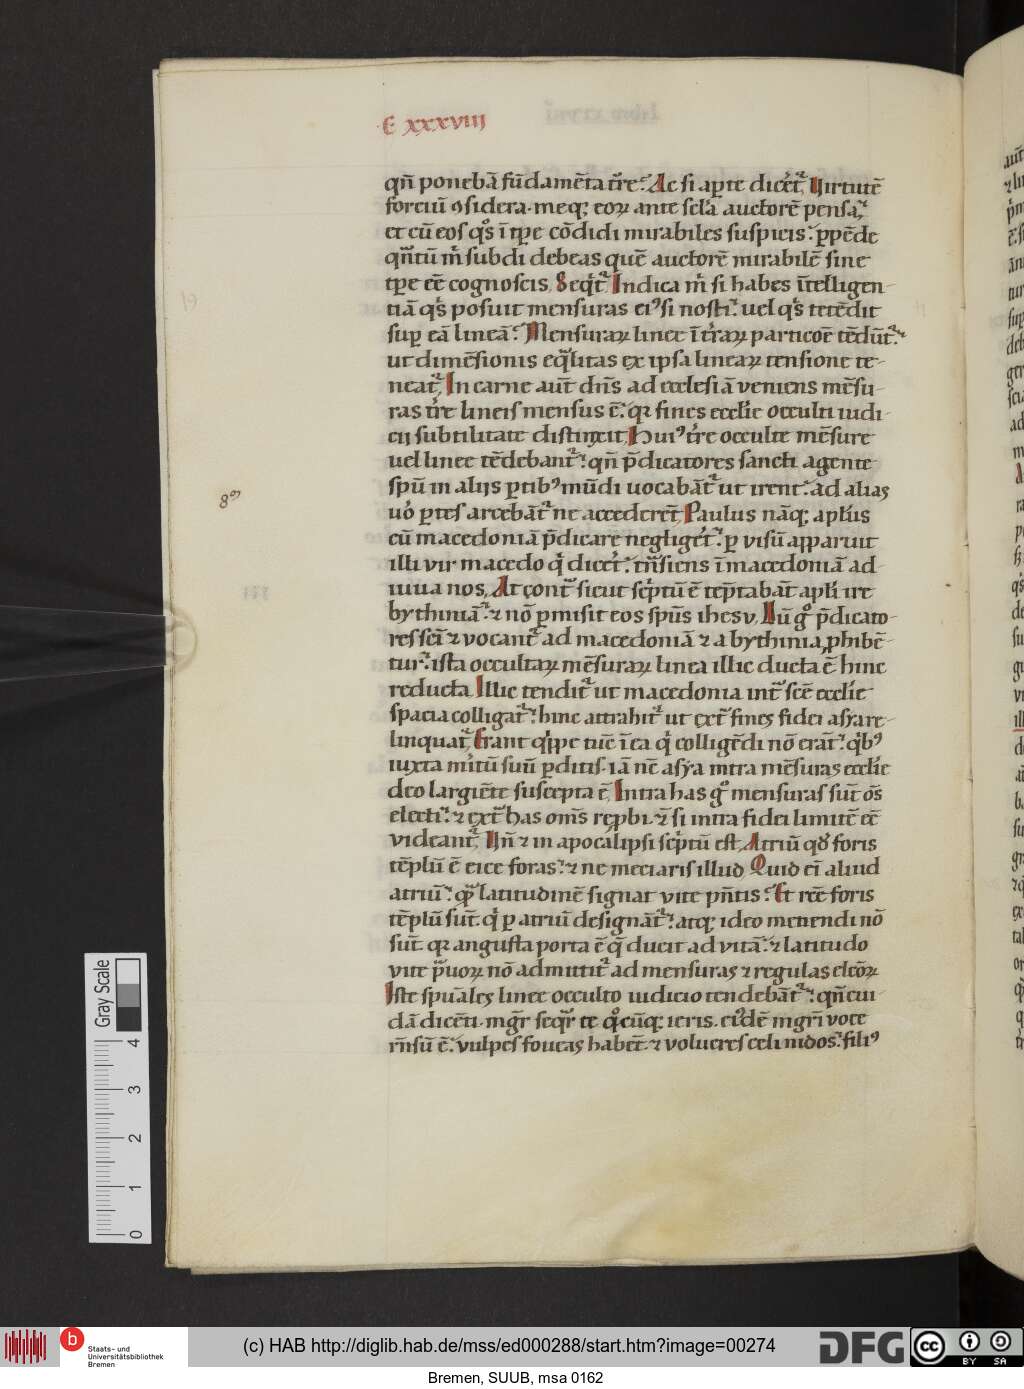 E xxxviii
qn̄ ponebā fūdamēta t̄re. Ac si aꝑte dicet̄. Virtutē
fortiū ꝯsidera. meq; eoꝝ ante sc̄la auctorē pensa.
et cū eos qͦs ī tꝑe cōdidi mirabiles suspicis. ꝑpēde
qn̄tū m̄ subdi debeas quē auctorē mirabilē sine
tꝑe eē cognoscis. Seqt̄. Indica m̄ si habes ītelligen-
tiā qͥs posuit mensuras eiꝰ si nosti. uel qͥs tetēdit
suꝑ eā lineā. Mensuraꝝ linee ī t̄raꝝ particōe tēdūt̄.
ut dimēsionis eq̄litas ex ipsa lineaꝝ tensione te-
neat̄. In carne aut̄ dn̄s ad ecclesiā veniens mēsu-
ras t̄re lineis mensus ē. qꝛ fines eccl̄ie occulti iudi-
cij subtilitate distinxit. Huiꝰ t̄re occulte mēsure
uel linee tēdebant̄. qn̄ p̄dicatores sancti agente
spū in alijs ꝑtibꝰ mūdi uocabāt̄ ut irent. ad alias
8ᵐ
uō ꝑtes arcebāt̄ ne accederēt. Paulus nāq; apl̄us
cū macedoniā p̄dicare negligēt̄. ꝑ visū apparuit
illi vir macedo qͥ dicēt̄. tn̄siens ī macedoniā ad-
iuua nos. At ꝯt̄ sicut sc̄ptū ē tēptabāt apl̄i ire
bythiniā. ⁊ nō ꝑmisit eos spūs ihesv. Cū gͦ p̄dicato-
res sc̄i ⁊ vocant̄ ad macedoniā ⁊ a bythinia ꝓhibē-
tur. ista occultaꝝ mēsuraꝝ linea illic ducta ē hinc
reducta. Illic tendit̄ ut macedonia int̄ sc̄e eccl̄ie
spacia colligat̄. hinc attrahit̄ ut ext̄ fines fidei asya re-
linquat̄. Erant qͥppe tūc ī ea qͥ colligēdi nō erāt. qͥbꝰ
iuxta mītū suū ꝑditis. iā nē asya intra mēsuras eccl̄ie
deo largiēte suscepta ē. Intra has gͦ mensuras sūt ōs
electi. ⁊ ext̄ has om̄s rep̄bi. ⁊ si intra fidei limitē eē
videant̄. Hn̄ ⁊ in apocalipsi sc̄ptū est. Atriū qd̄ foris
tēplū ē eice foras. ⁊ ne meciaris illud. Quid ei aliud
atriū. qͣ latitudinē signat vite pn̄tis. Et rēe foris
tēplū sūt. qͥ ꝑ atriū designāt̄. atq; ideo metiendi nō
sūt. qꝛ angusta porta ē q̄ ducit ad vitā. ⁊ latitudo
vite p̄uoꝝ nō admittit̄ ad mensuras ⁊ regulas eleōꝝ
Iste spūales linee occulto iudicio tendebāt̄. qn̄ cui-
dā dicēti. mgr̄ seqr̄ te qͦcūq; ieris. eidē mgr̄i voce
rn̄sū ē. vulpes foueas habēt. ⁊ volucres celi nidos. filiꝰ
Gray Scale
4
3
2
1
0
Staats- und
Universitätsbibliothek
Bremen
(c) HAB http://diglib.hab.de/mss/ed000288/start.htm?image=00274
DFG
cc BY SA
Bremen, SUUB, msa 0162